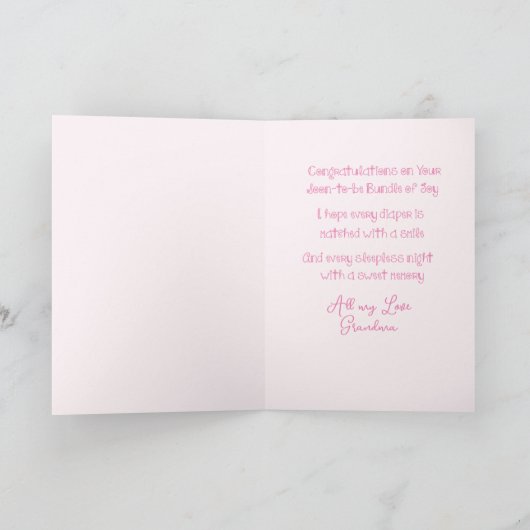 Congratulations on Your
Soon-to-be Bundle of Joy
I hope every diaper is
matched with a smile
And every sleepless night
with a sweet memory
All my Love
Grandma